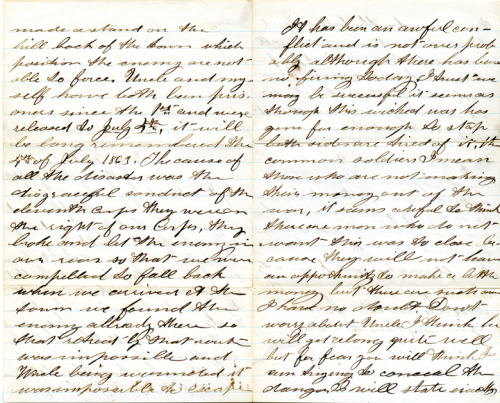 made a stand on the
hill back of the town which
position the enemy are not
able to force. Uncle and my
self have both been pris
oners since the 1st and were
released to July 4th, it will
be long remembered the
4th of July 1863. The cause of
all the disaster was the
disgraceful conduct of the
eleventh corps they were on
the right of our corps, they
broke and let the enemy in
our rear so that we were
compelled to fall back
when we arrived at the
town we found the
enemy allready there so
that retreat by that route
was impossible and
Uncle being wounded it
was impossible to escape
It has been an awful con-
flict and is not over prob
ably although there has been
no firing today. I trust we
may be successful it seems as
though this wicked war has
gone far enough to stop
both sides are tired of it, the
common soldiers I mean
those who are not making
their money out of the
war, it seems awful to think
there are men who do not
want this war to close be
cause they will not have
an opportunity to make a little
money but there are such men
I have no doubt. Dont
worry about Uncle I think he
will get along quite well
but for fear you will think I
am trying to conceal the
danger I will state exactly